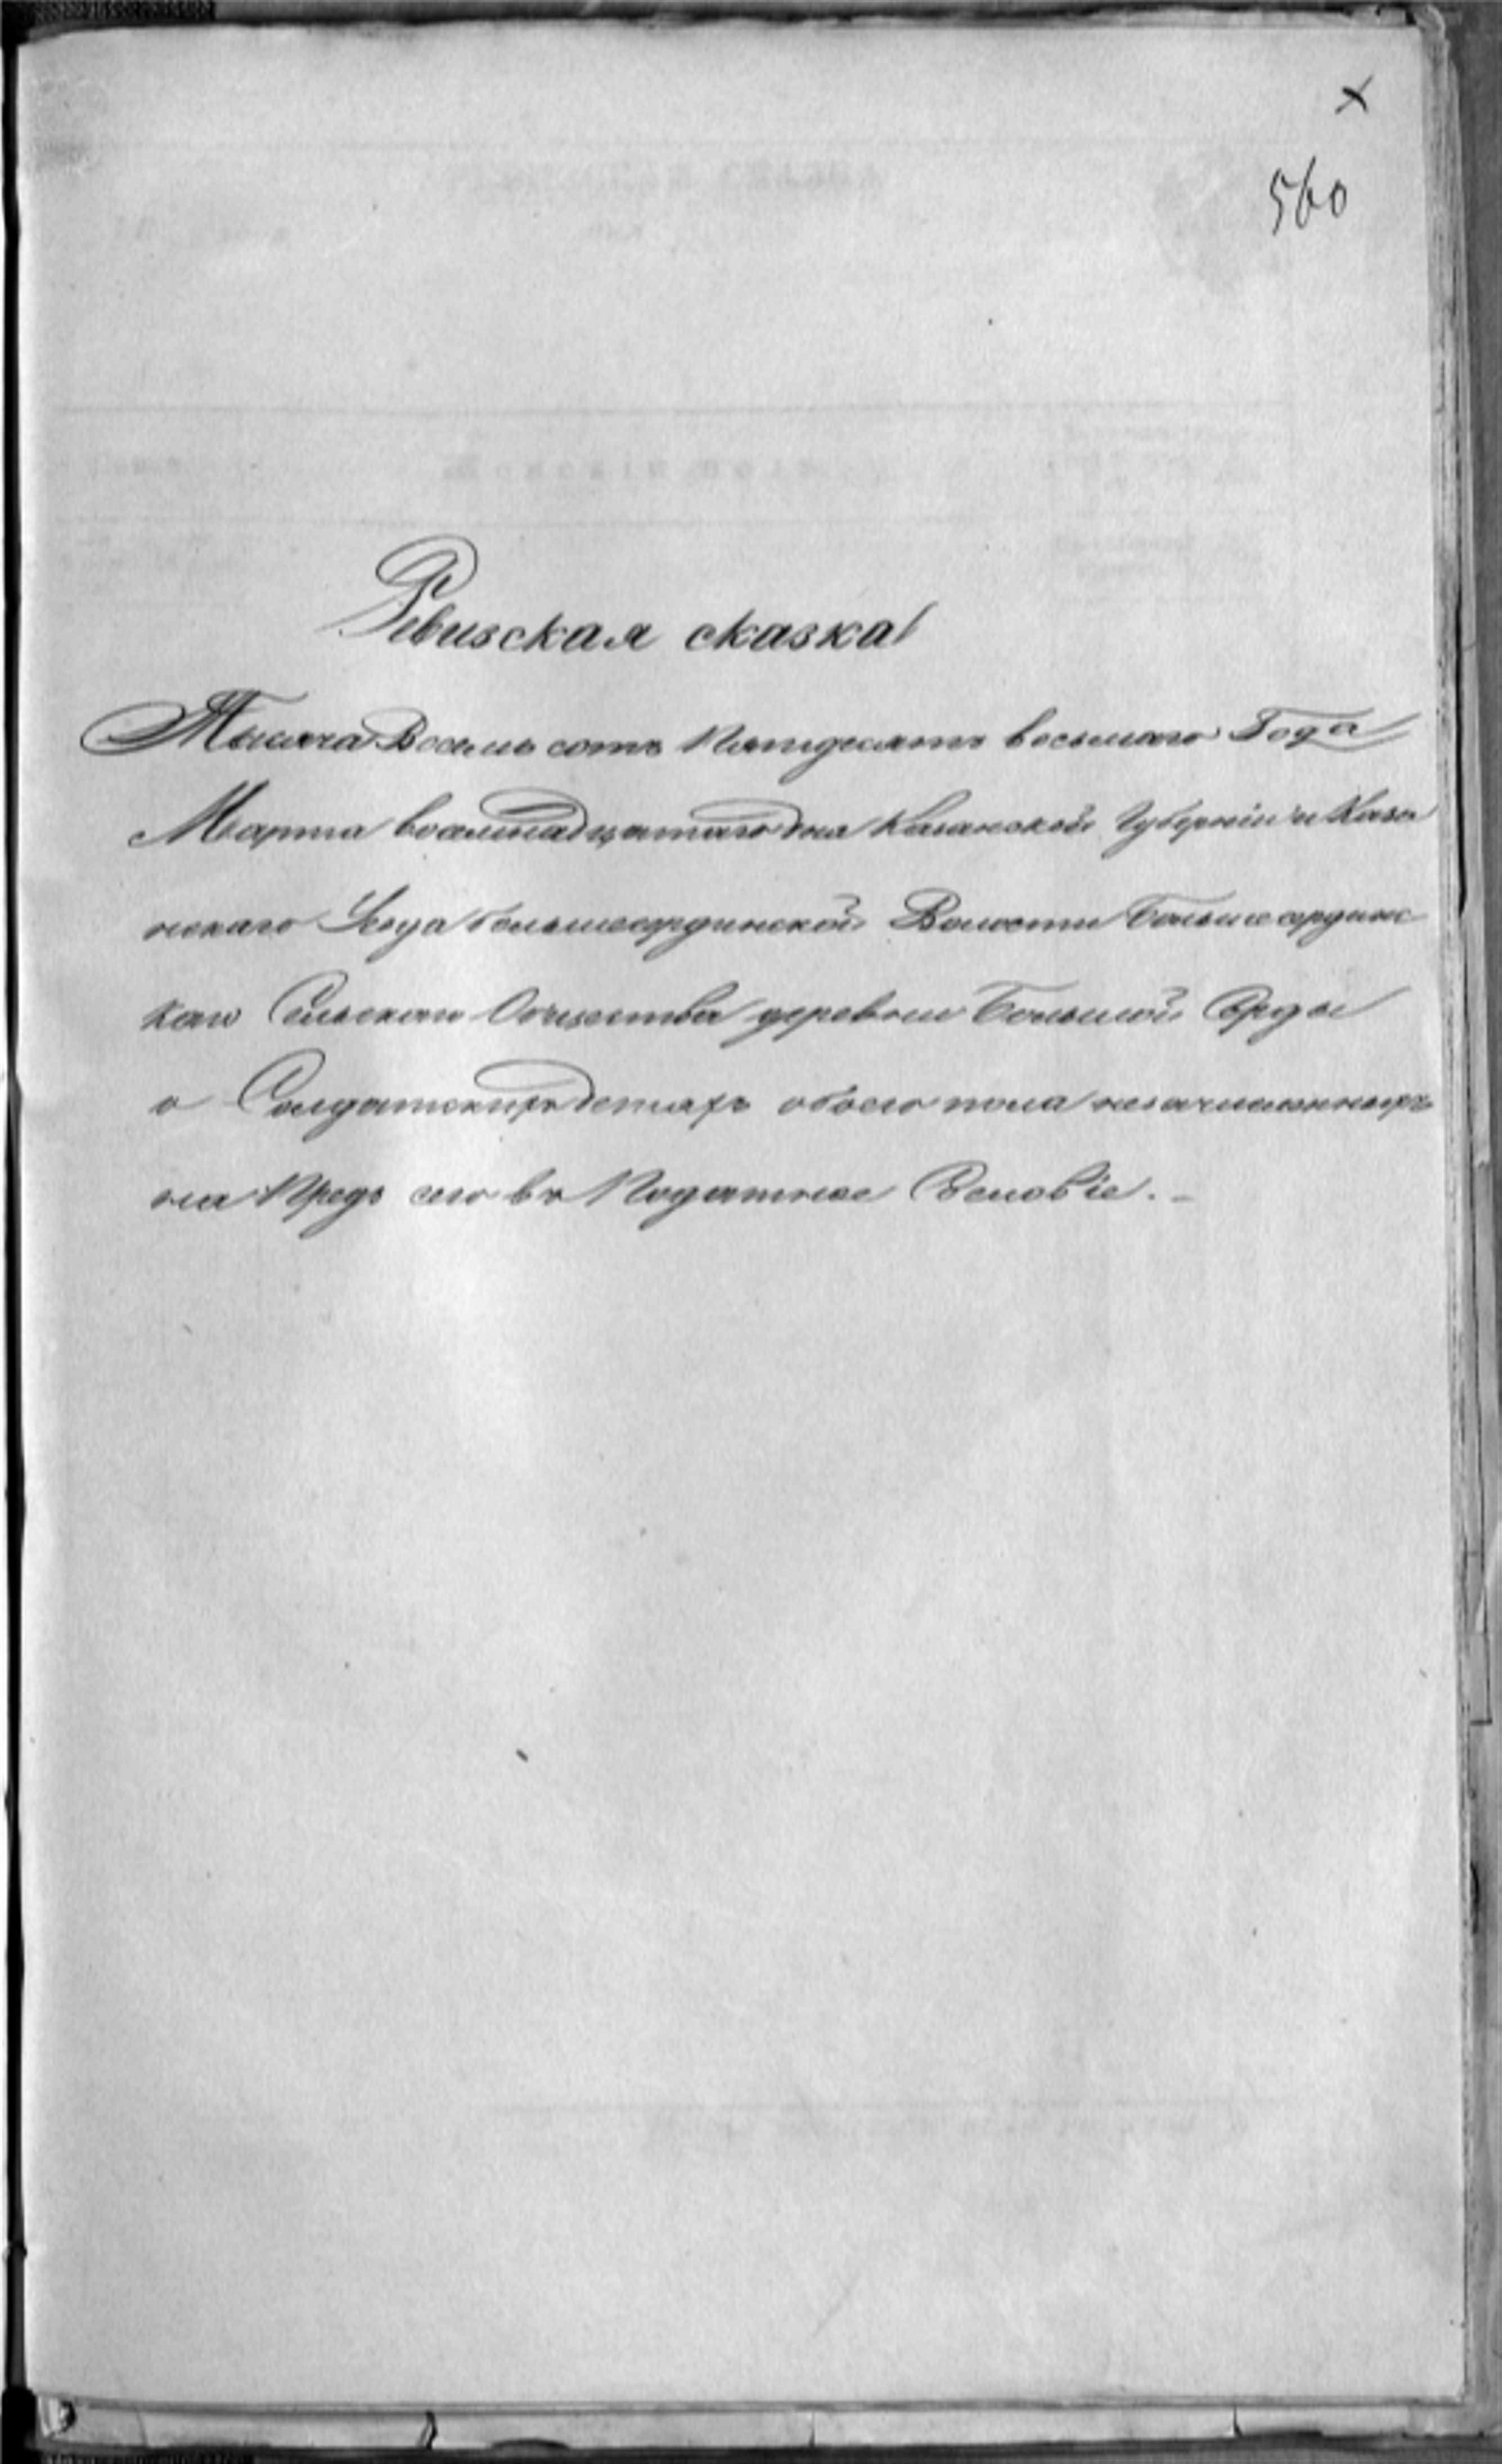 ×
560
Ревизская сказка
Тысяча Восемь сотъ Пятидесятъ восьмаго Года
Марта восемнадцатаго дня Казанской Губерніи и Каза
нскаго Уезда большесердинской Волости Большесердинс
каго Сельскаго Общества деревни Большой Серды
о Солдатскихъ детяхъ обоего пола незачисленныхъ
на Предъ сего въ Податное Сословіе. -